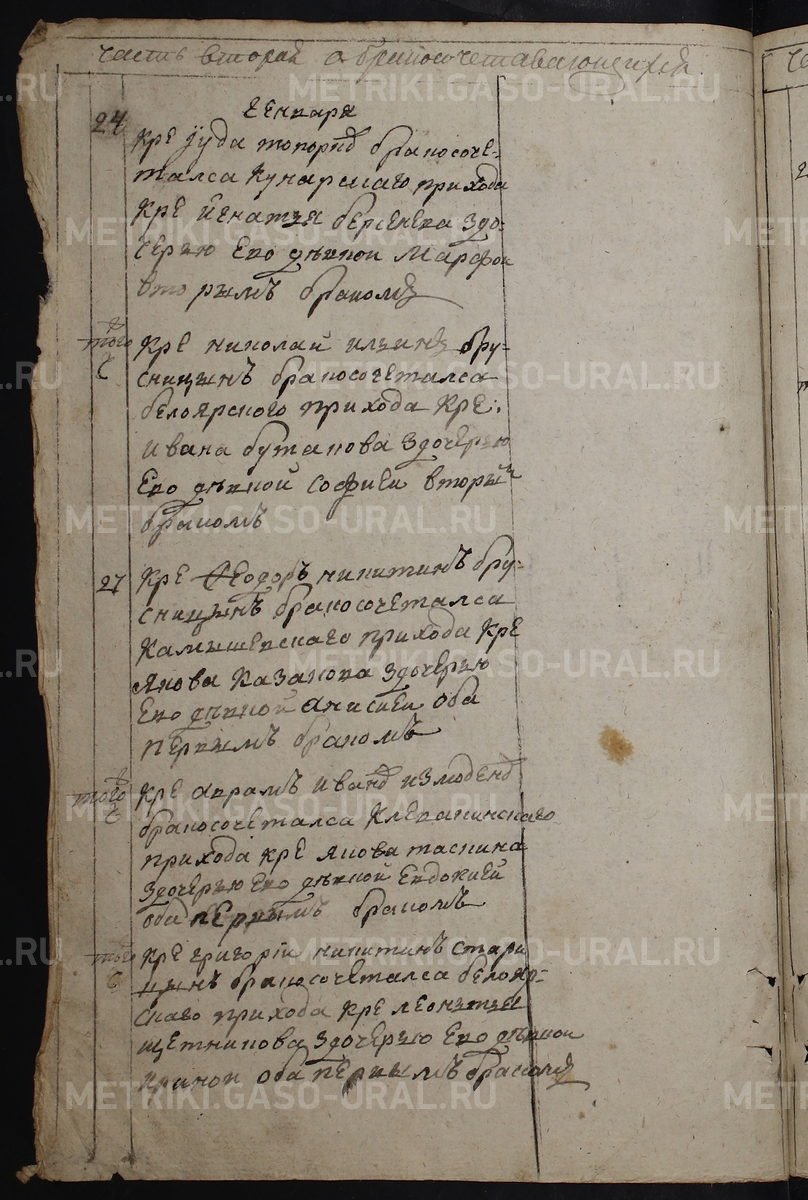 часть вторая о бракосочетавающихся
генваря
24 кре иуда топорковъ бракосоче-
талса кунарскаго прихода
кре игнатья берсенева здо-
черью ево дѣвкои марфои
вторымъ бракомъ
того же кре николай ильинъ бру-
сницынъ бракосочеталса
белоярского прихода кре
ивана бутакова здочерью
ево дѣвкой софиеи вторым
бракомъ
27 кре Ѳеодоръ никитинъ бру-
сницынъ бракосочеталса
камышевскаго прихода кре
якова казакова здочерью
ево дѣвкой анисиеи оба
первымъ бракомъ
того же кре аврамъ иванов измоденов
бракосочеталса клевакинскаго
прихода кре якова таскина
здочерью ево дѣвкой евдокиеи
оба первымъ бракомъ
того же кре григорïи никитинъ стари
цынъ бракосочеталса белояр-
скаго прихода кре леонтья
щетникова здочерью ево дѣвкои
ириной оба первымъ бракомъ
METRIKI.GASO-URAL.RU